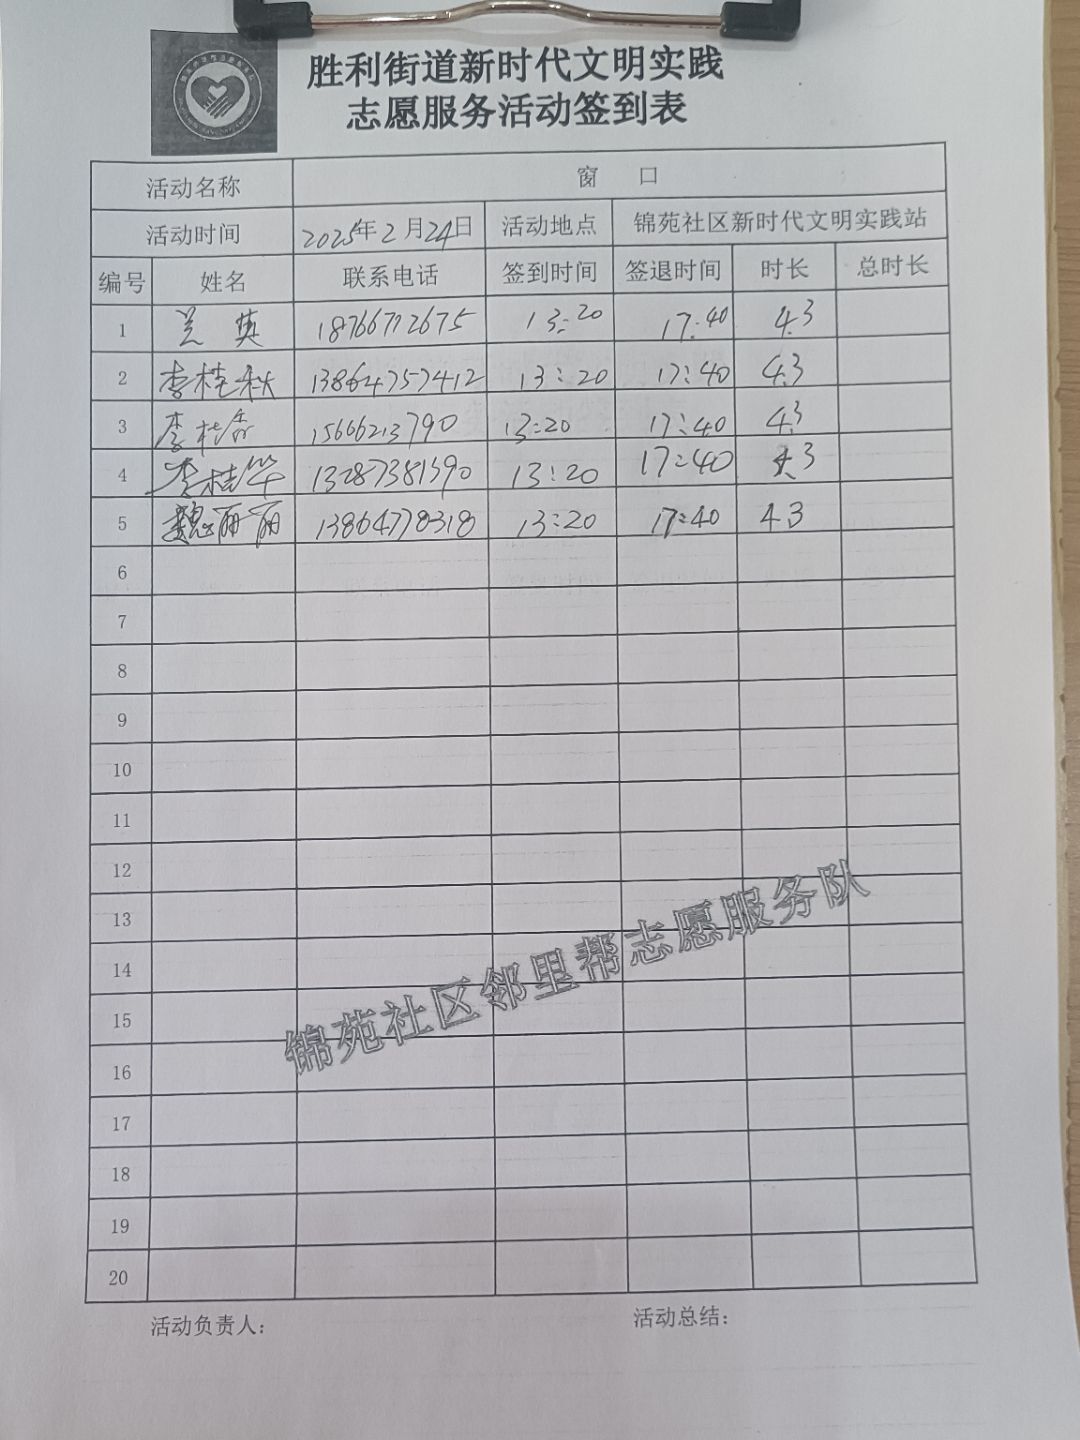 胜利街道新时代文明实践
志愿服务活动签到表
活动名称 窗 口
活动时间 2025年2月24日 活动地点 锦苑社区新时代文明实践站
编号 姓名 联系电话 签到时间 签退时间 时长 总时长
1 兰英 18766712675 13:20 17:40 4.3
2 李桂秋 13864757412 13:20 17:40 4.3
3 李桂香 15666213790 13:20 17:40 4.3
4 李桂华 13287381390 13:20 17:40 4.3
5 魏丽丽 13864778318 13:20 17:40 4.3
6
7
8
9
10
11
12
13
14
15
16
17
18
19
20
锦苑社区邻里帮志愿服务队
活动负责人: 活动总结: